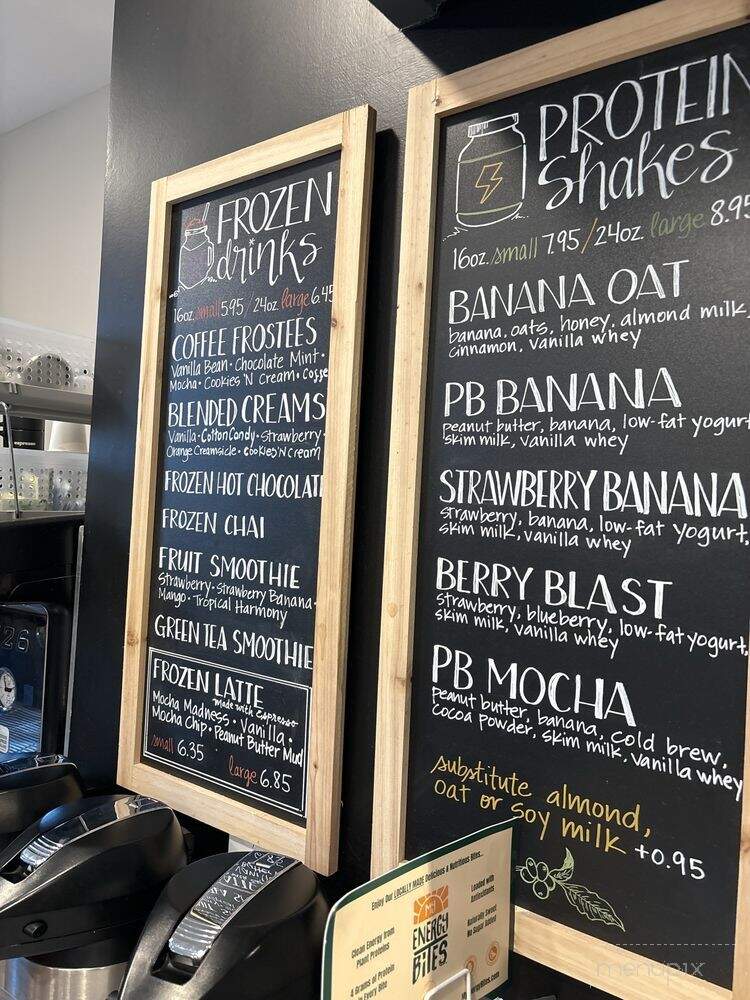 FROZEN
drinks
16oz. small 5.95 / 24oz. large 6.45
COFFEE FROSTEES
Vanilla Bean · Chocolate Mint ·
Mocha · Cookies 'N Cream ·
BLENDED CREAMS
Vanilla · Cotton Candy · Strawberry ·
Orange Creamsicle · Cookies 'N Cream
FROZEN HOT CHOCOLATE
FROZEN CHAI
FRUIT SMOOTHIE
Strawberry · Strawberry Banana ·
Mango · Tropical Harmony
GREEN TEA SMOOTHIE
FROZEN LATTE
made with Espresso
Mocha Madness · Vanilla ·
Mocha Chip · Peanut Butter Mud
small 6.35
large 6.85
PROTEIN
Shakes
16oz. small 7.95 / 24oz. large 8.95
BANANA OAT
banana, oats, honey, almond milk,
cinnamon, vanilla whey
PB BANANA
peanut butter, banana, low-fat yogurt
skim milk, vanilla whey
STRAWBERRY BANANA
strawberry, banana, low-fat yogurt,
skim milk, vanilla whey
BERRY BLAST
strawberry, blueberry, low-fat yogurt,
skim milk, vanilla whey
PB MOCHA
peanut butter, banana, cold brew,
cocoa powder, skim milk, vanilla whey
substitute almond,
oat or soy milk +0.95
Enjoy Our LOCALLY MADE Delicious & Nutritious Bites...
MY
ENERGY
BiTES
Loaded with
Antioxidants
Clean Energy from
Plant Proteins
Naturally Sweet
No Sugar Added
4 Grams of Protein
in Every Bite
26
menupix